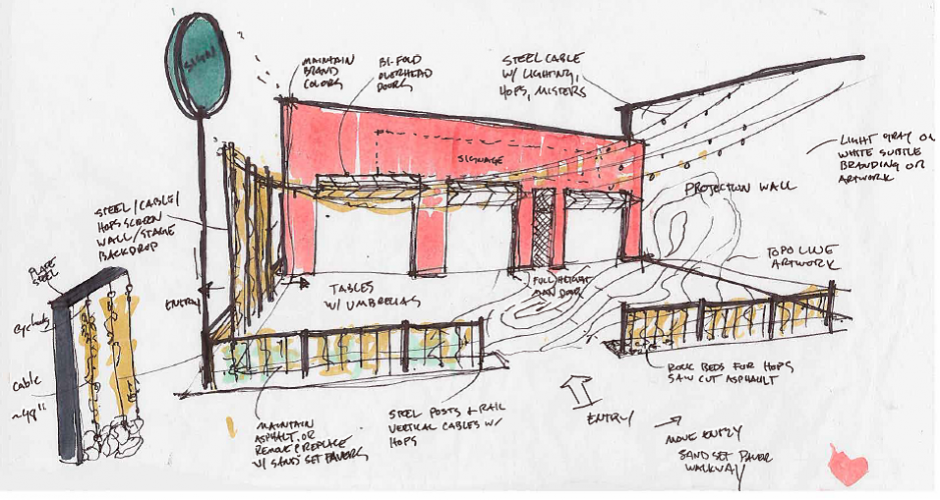 SIGN
MAINTAIN
BRAND
COLORS
BI-FOLD
OVERHEAD
DOORS
STEEL CABLE
W/ LIGHTING,
HOPS, MISTERS
LIGHT GRAY ON
WHITE SUBTLE
BRANDING OR
ARTWORK
SIGNAGE
PROJECTION WALL
STEEL/CABLE/
HOPS SCREEN
WALL/STAGE
BACKDROP
TOPO LINE
ARTWORK
PLATE
STEEL
ENTRY
TABLES
W/ UMBRELLAS
FULL HEIGHT
DOOR
eyebolts
cable
~48"
ROCK BEDS FOR HOPS
SAW CUT ASPHALT
MAINTAIN
ASPHALT OR
REMOVE & REPLACE
W/ SAND SET PAVERS
STEEL POSTS & RAIL
VERTICAL CABLES W/
HOPS
ENTRY
MOVE ENTRY
SAND SET PAVER
WALKWAY